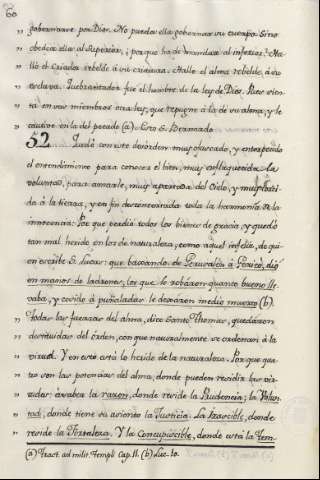 60
gobernarse por Dios. No pueda ella gobernar su cuerpo. Si no
obedece ella al Superior, ¿por que ha de mandar al inferior? Ha-
lló el Criador rebelde á su criatura. Halle el alma rebelde, á su
esclava. Quebrantador fue el hombre de la ley de Dios. Pues sien-
ta en sus miembros otra ley, que repugne á la de su alma, y le
cautive en la del pecado (a). Esto S. Bernardo.
52 Quedó con este desórden muy ofuscado, y entorpecido
el entendimiento para conocer el bien, muy enflaquecida la
voluntad, para amarle, muy apartada del Cielo, y muy
da á la tierra, y en fin desconcertada toda la harmonía de la
inocencia: Por que perdió todos los bienes de gracia, y quedó
tan mal herido en los de naturaleza, como aquel infeliz, de qui-
en escribe S. Lucas: que baxando de Jerusalén á Jericó, dió
en manos de ladrones, los que le robaron quanto bueno lle-
vaba, y cosido á puñaladas le dexaron medio muerto (b).
Todas las fuerzas del alma, dice Santo Thomas, quedaron
destituidas del órden, con que naturalmente se ordenan á la
virtud. Y en esto está lo herido de la naturaleza. Por que qua-
tro son las potencias del alma, donde pueden residir las vir-
tudes: á saber la razon, donde reside la Prudencia; la Volun-
tad; donde tiene su asiento la Justicia. La Irascible, donde
reside la Fortaleza. Y la Concupiscible, donde está la Tem-
(a) Tract. ad milit. Templi Cap. 11. (b) Luc. 10.